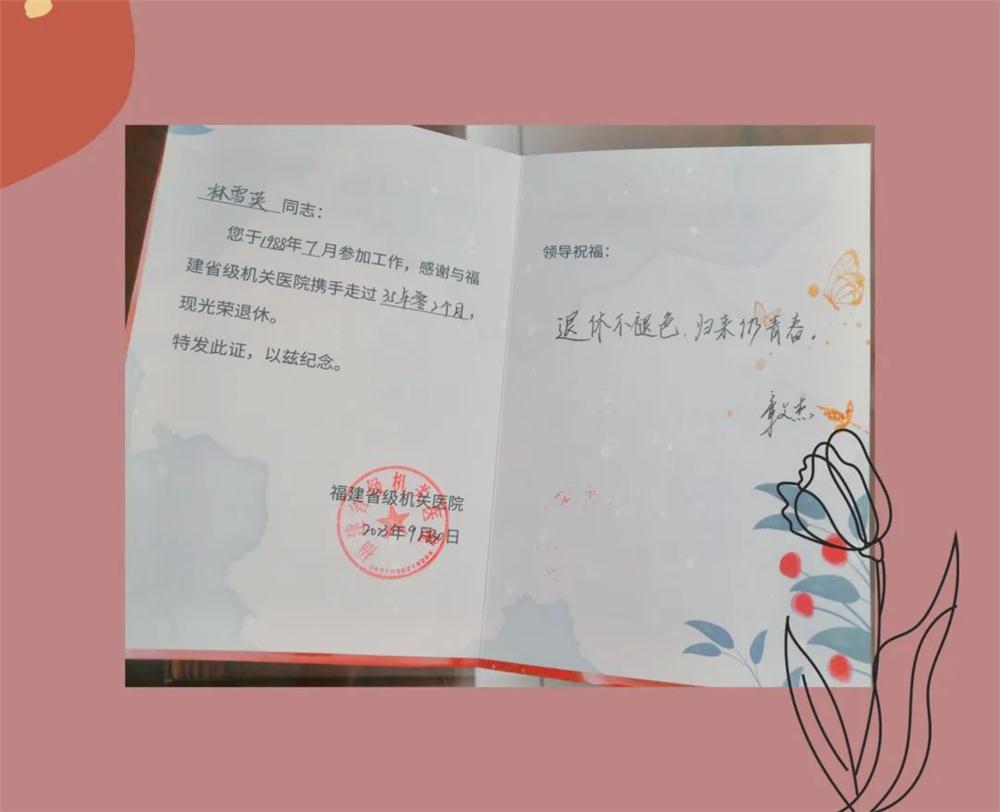 林雪英 同志：
您于1988年7月参加工作，感谢与福
建省级机关医院携手走过35年零2个月，
现光荣退休。
特发此证，以兹纪念。
福建省级机关医院
2023年9月30日
福建省级机关医院
领导祝福：
退休不褪色，归来仍青春。